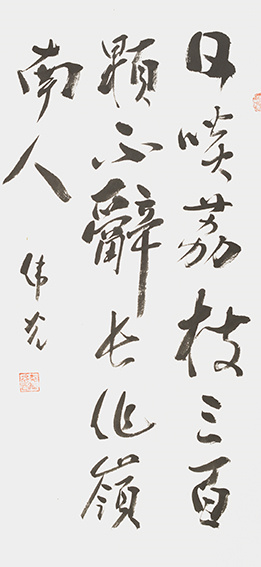 日啖荔枝三百
顆不辭長作嶺
南人
偉光